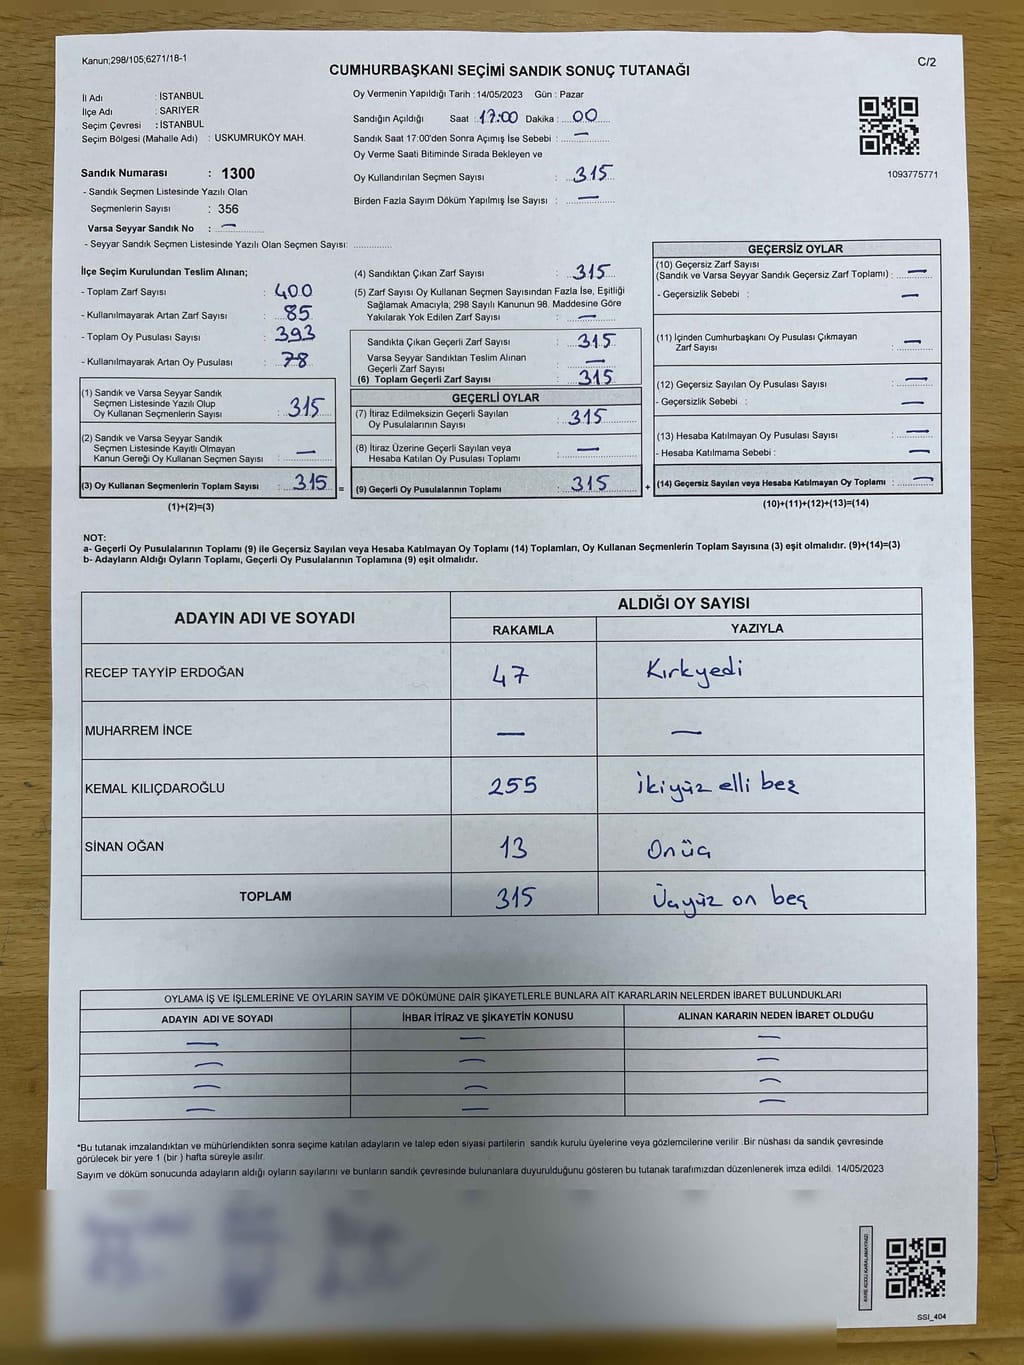 Kanun;298/105;6271/18-1
CUMHURBAŞKANI SEÇİMİ SANDIK SONUÇ TUTANAĞI
C/2
İl Adı : İSTANBUL
İlçe Adı : SARIYER
Seçim Çevresi : İSTANBUL
Seçim Bölgesi (Mahalle Adı) : USKUMRUKÖY MAH.
Sandık Numarası : 1300
- Sandık Seçmen Listesinde Yazılı Olan
Seçmenlerin Sayısı : 356
Varsa Seyyar Sandık No : —
- Seyyar Sandık Seçmen Listesinde Yazılı Olan Seçmen Sayısı: ..............
Oy Vermenin Yapıldığı Tarih : 14/05/2023 Gün : Pazar
Sandığın Açıldığı Saat : 17:00 Dakika : 00
Sandık Saat 17:00'den Sonra Açımış İse Sebebi : —
Oy Verme Saati Bitiminde Sırada Bekleyen ve
Oy Kullandırılan Seçmen Sayısı : 315
Birden Fazla Sayım Döküm Yapılmış İse Sayısı : —
1093775771
İlçe Seçim Kurulundan Teslim Alınan;
- Toplam Zarf Sayısı : 400
- Kullanılmayarak Artan Zarf Sayısı : 85
- Toplam Oy Pusulası Sayısı : 393
- Kullanılmayarak Artan Oy Pusulası : 78
(1) Sandık ve Varsa Seyyar Sandık
Seçmen Listesinde Yazılı Olup
Oy Kullanan Seçmenlerin Sayısı : 315
(2) Sandık ve Varsa Seyyar Sandık
Seçmen Listesinde Kayıtlı Olmayan
Kanun Gereği Oy Kullanan Seçmen Sayısı : —
(3) Oy Kullanan Seçmenlerin Toplam Sayısı : 315
(1)+(2)=(3)
=
(4) Sandıktan Çıkan Zarf Sayısı : 315
(5) Zarf Sayısı Oy Kullanan Seçmen Sayısından Fazla İse, Eşitliği
Sağlamak Amacıyla; 298 Sayılı Kanunun 98. Maddesine Göre
Yakılarak Yok Edilen Zarf Sayısı : —
Sandıkta Çıkan Geçerli Zarf Sayısı : 315
Varsa Seyyar Sandıktan Teslim Alınan
Geçerli Zarf Sayısı : —
(6) Toplam Geçerli Zarf Sayısı : 315
GEÇERLİ OYLAR
(7) İtiraz Edilmeksizin Geçerli Sayılan
Oy Pusulalarının Sayısı : 315
(8) İtiraz Üzerine Geçerli Sayılan veya
Hesaba Katılan Oy Pusulası Toplamı : —
(9) Geçerli Oy Pusulalarının Toplamı : 315
+
GEÇERSİZ OYLAR
(10) Geçersiz Zarf Sayısı
(Sandık ve Varsa Seyyar Sandık Geçersiz Zarf Toplamı) : —
- Geçersizlik Sebebi : —
(11) İçinden Cumhurbaşkanı Oy Pusulası Çıkmayan
Zarf Sayısı : —
(12) Geçersiz Sayılan Oy Pusulası Sayısı : —
- Geçersizlik Sebebi : —
(13) Hesaba Katılmayan Oy Pusulası Sayısı : —
- Hesaba Katılmama Sebebi : —
(14) Geçersiz Sayılan veya Hesaba Katılmayan Oy Toplamı : —
(10)+(11)+(12)+(13)=(14)
NOT:
a- Geçerli Oy Pusulalarının Toplamı (9) ile Geçersiz Sayılan veya Hesaba Katılmayan Oy Toplamı (14) Toplamları, Oy Kullanan Seçmenlerin Toplam Sayısına (3) eşit olmalıdır. (9)+(14)=(3)
b- Adayların Aldığı Oyların Toplamı, Geçerli Oy Pusulalarının Toplamına (9) eşit olmalıdır.
ADAYIN ADI VE SOYADI
ALDIĞI OY SAYISI
RAKAMLA YAZIYLA
RECEP TAYYİP ERDOĞAN 47 Kırkyedi
MUHARREM İNCE — —
KEMAL KILIÇDAROĞLU 255 ikiyüz elli beş
SİNAN OĞAN 13 Onüç
TOPLAM 315 Üçyüz on beş
OYLAMA İŞ VE İŞLEMLERİNE VE OYLARIN SAYIM VE DÖKÜMÜNE DAİR ŞİKAYETLERLE BUNLARA AİT KARARLARIN NELERDEN İBARET BULUNDUKLARI
ADAYIN ADI VE SOYADI İHBAR İTİRAZ VE ŞİKAYETİN KONUSU ALINAN KARARIN NEDEN İBARET OLDUĞU
— — —
— — —
— — —
— — —
*Bu tutanak imzalandıktan ve mühürlendikten sonra seçime katılan adayların ve talep eden siyasi partilerin sandık kurulu üyelerine veya gözlemcilerine verilir .Bir nüshası da sandık çevresinde
görülecek bir yere 1 (bir ) hafta süreyle asılır.
Sayım ve döküm sonucunda adayların aldığı oyların sayılarını ve bunların sandık çevresinde bulunanlara duyurulduğunu gösteren bu tutanak tarafımızdan düzenlenerek imza edildi. 14/05/2023
SSI_404